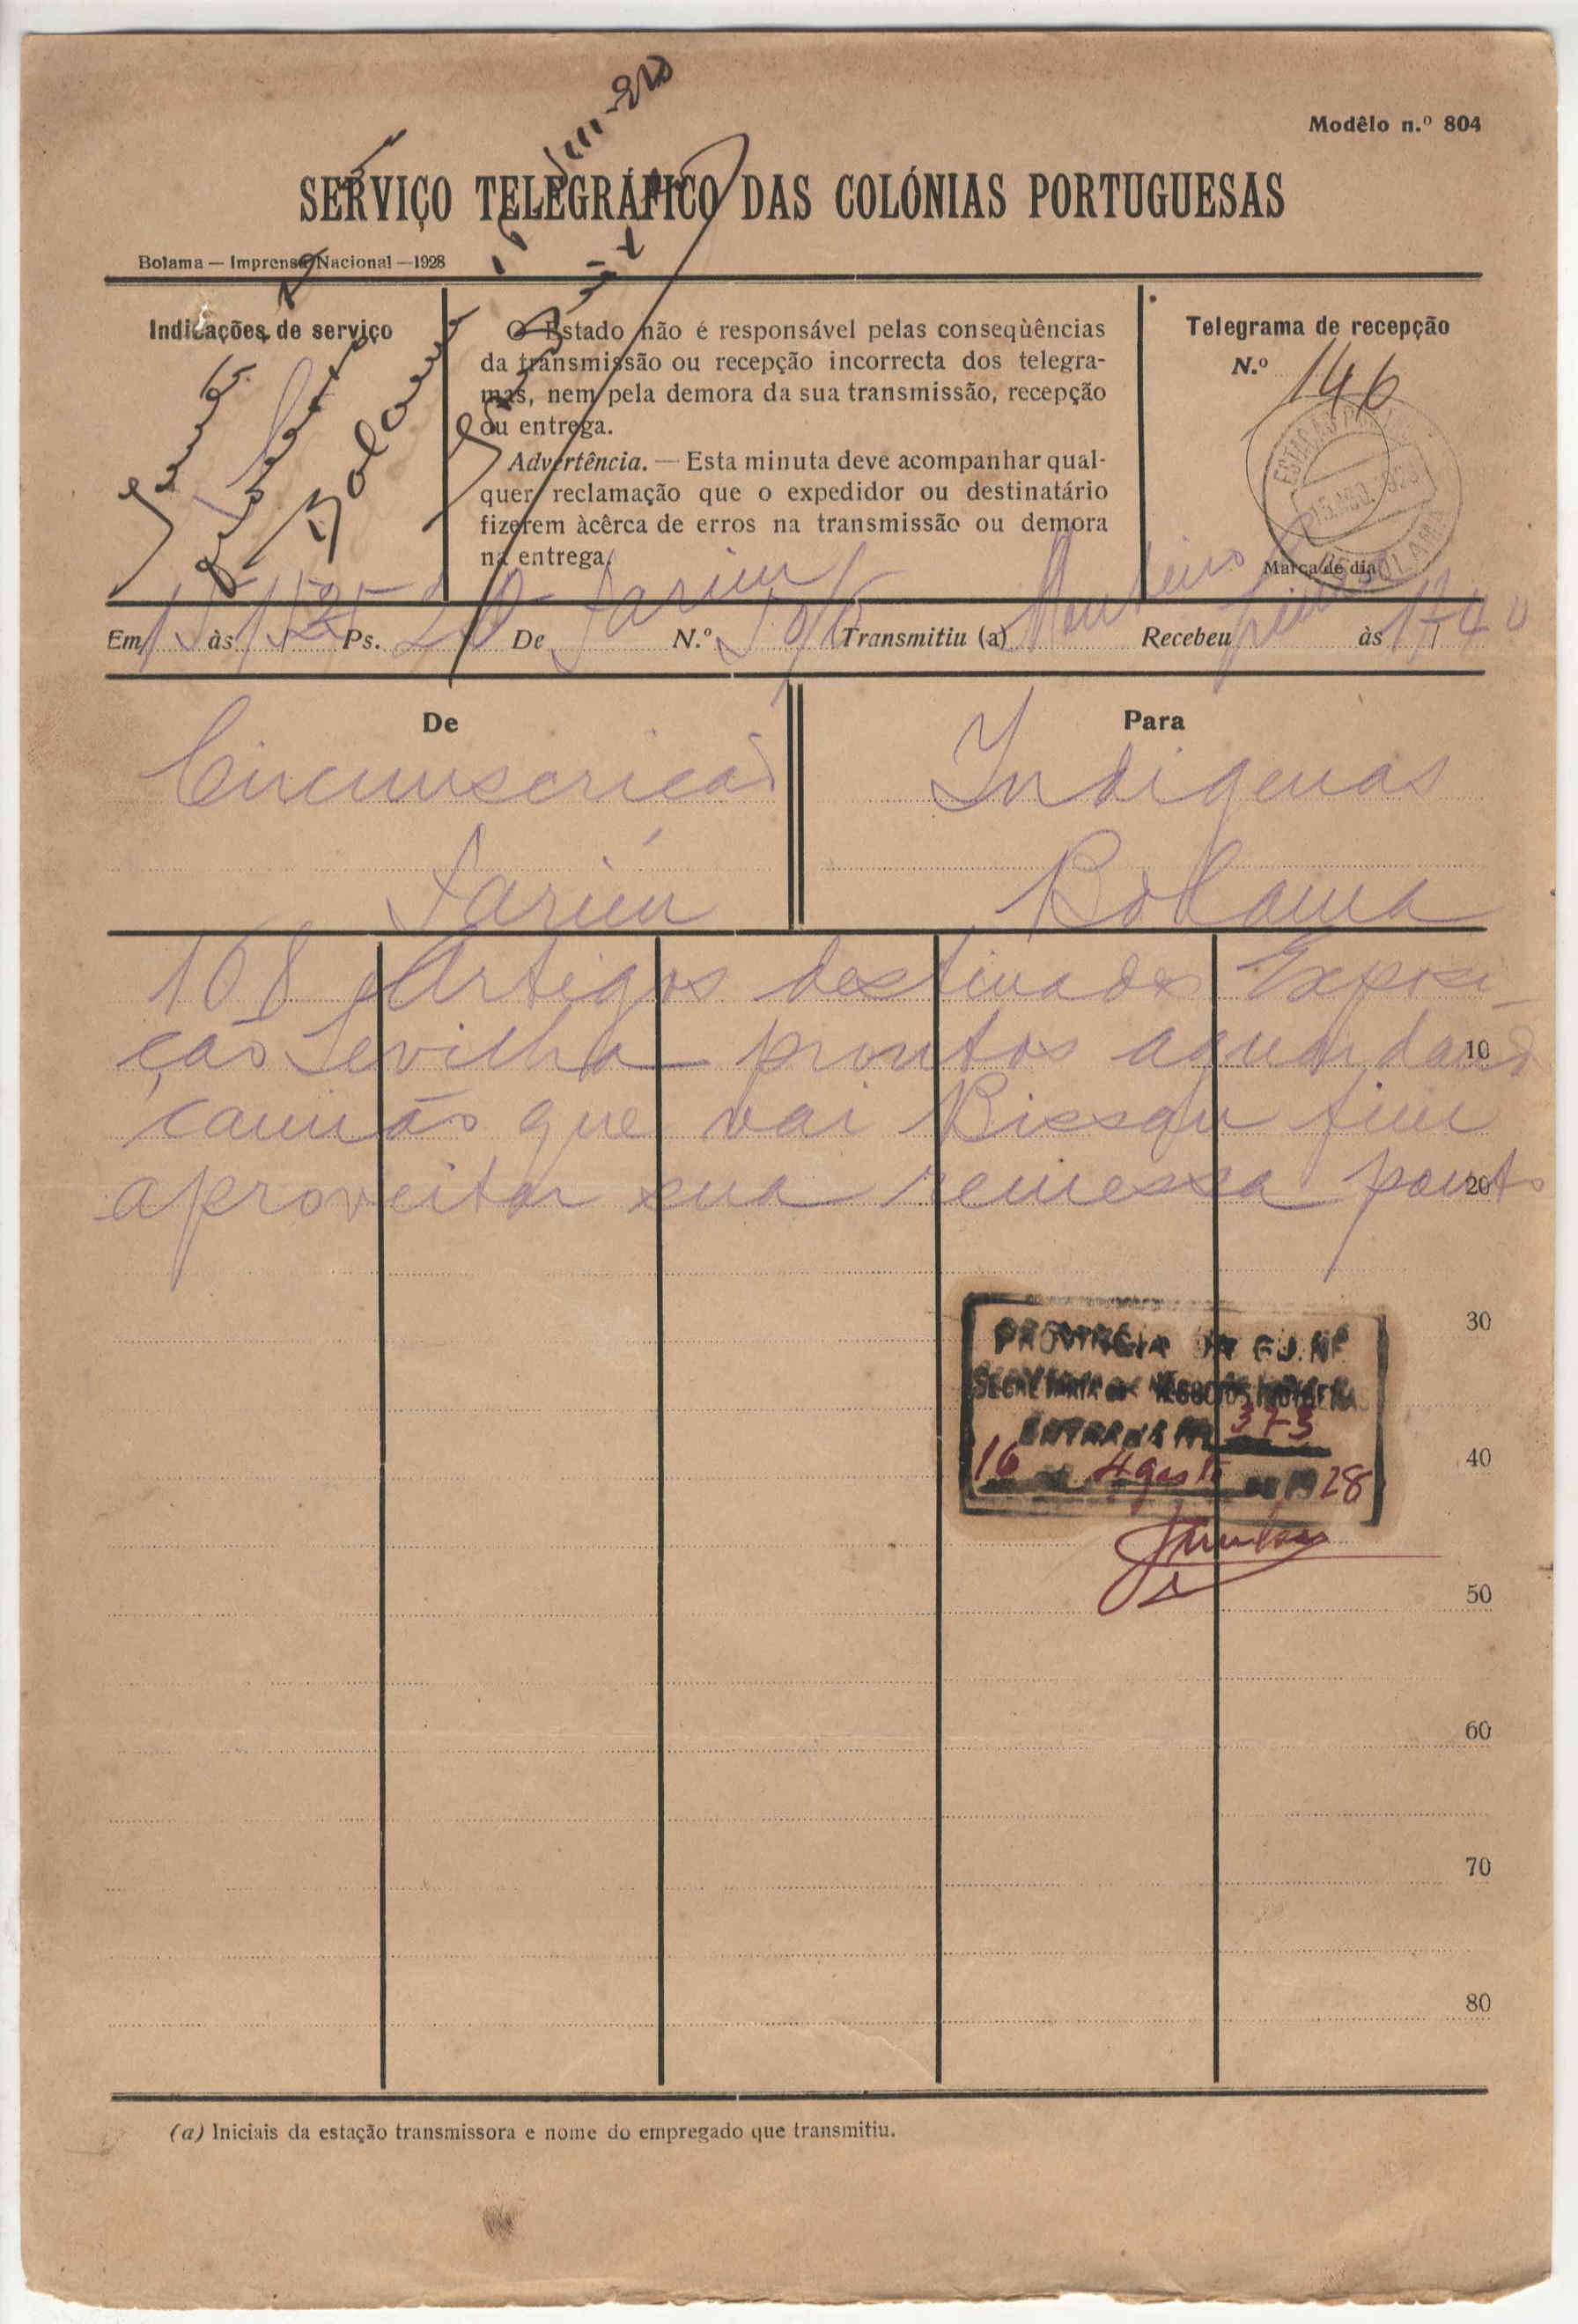 Modêlo n.º 804
SERVIÇO TELEGRÁFICO DAS COLÓNIAS PORTUGUESAS
Bolama — Imprensa Nacional — 1928
Indicações de serviço
Bolama
O Estado não é responsável pelas conseqüências
da transmissão ou recepção incorrecta dos telegra-
mas, nem pela demora da sua transmissão, recepção
ou entrega.
Advertência. — Esta minuta deve acompanhar qual-
quer reclamação que o expedidor ou destinatário
fizerem àcêrca de erros na transmissão ou demora
na entrega.
Telegrama de recepção
N.º 146
Marca de dia
Em 15 às 1525 Ps. 20 De Farim N.º Transmitiu (a) Monteiro Recebeu às 1740
De
Circunscricão
Farim
Para
Indigenas
Bolama
108 Artigos destinados Exposi-
ção Sevilha prontos aguardando
camião que vai Bissau fim
aproveitar sua remessa ponto
10
20
30
40
50
60
70
80
PROVINCIA DA GUINÉ
SECRETARIA DOS NEGOCIOS INDIGENAS
ENTRADA Nº 373
16 de Agosto de 1928
(a) Iniciais da estação transmissora e nome do empregado que transmitiu.